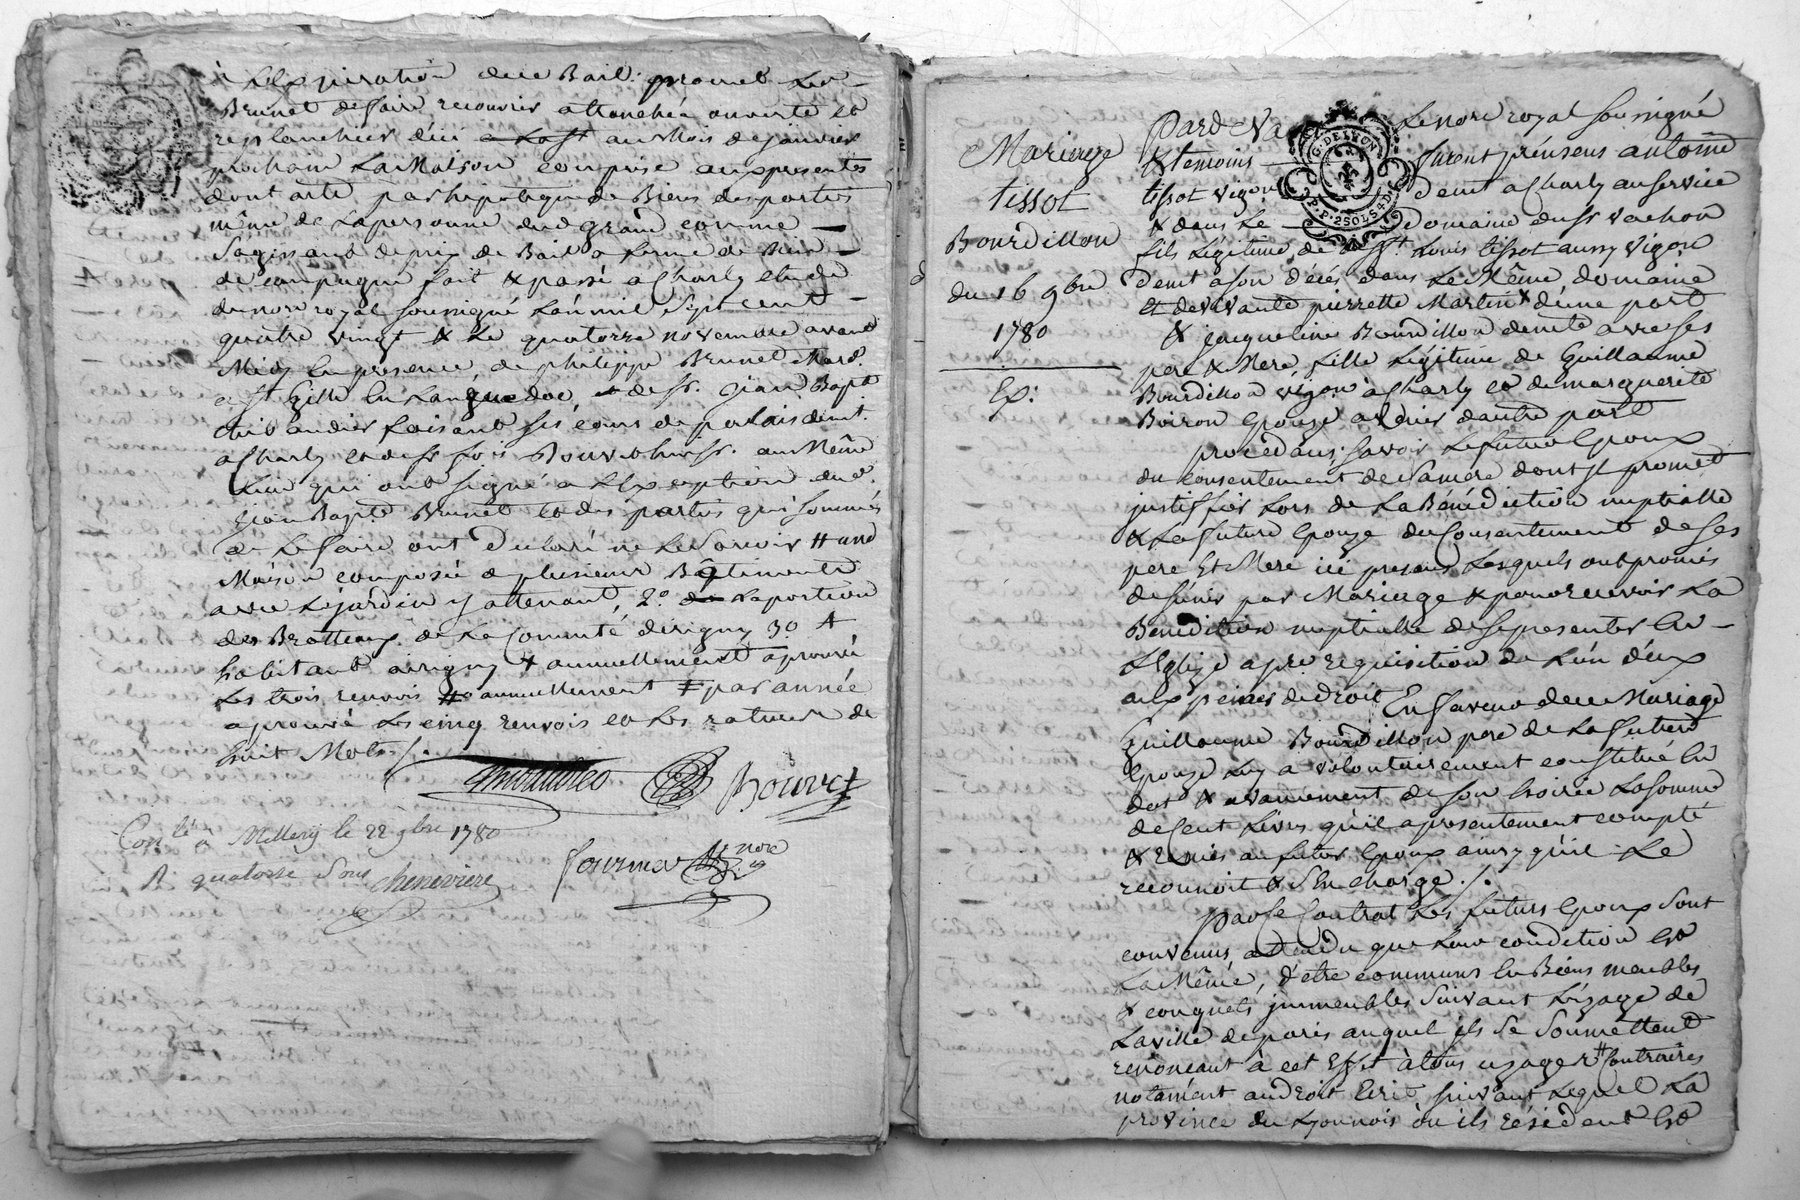 à l'expiration dece Bail. promet led
Brunet defaire recouvrir atranchée ouverte et
replanchier d'ici au Mois dejanvier
prochain la Maison comprise aux presentes
dont acte par hipotique de Biens des parties
même de la personne dud grand comme
Sagissant de prix de Bail a ferme de Bien
de campagne fait & passé a Charly etude
du nore royal soussigné l'an mil Sept cent
quatre vingt & le quatorze novembre avant
Midy en presence, de philippe Brunet Mard
a St Gille en Languedoc, et de Sr. jean Bapt
thibaudier faisant ses cours de palais demt
a Charly et de Sr Bouvet au Même
Lieu qui ont signé a l'exception dud.
jean Bapte Brunet et des parties qui sommés
de le faire ont declaré ne le savoir # und
Maison composée de plusieurs Bâtiments
avec le jardin y attenant, 2º la portion
des Brotteaux de la Comuté d'irigny 3º A
habitant airigny + annuellement aprouvé
les trois renvois annuellement ‡ par année
aprouvé les cinq renvois et les ratures de
huit Mots ./.
Thibaudier Bouvet
Conlé a Millery le 22 9bre 1780
R quatorze Sous Chenevière
fournier nore
Mariage
tissot
Bourdillon
du 16 9bre
1780
Ex:
Pardevant Le nore royal soussigné
& temoins furent présens antoine
tissot vigon demt a Charly au service
& dans le Domaine du Sr vachon
fils Legitime de Louis tissot aussy vigon
demt a son décés dans le Même domaine
et de vivante pierrette Martin d'une part
& jacqueline Bourdillon demte avec ses
pere & Mere, fille Légitime de Guillaume
Bourdillon vigon a Charly et de marguerite
Boiron Epouze d'autre part
procédans; savoir le futur Epoux
du consentement de sa mere dont il promet
justiffier lors de la Bénédiction nuptialle
& la future Epouze du Consentement de ses
pere Et Mere ici presens lesquels ont promis
de s'unir par Mariage & pour recevoir la
Benediction nuptialle de se presenter En
l'Eglize a pre requisition de l'un d'eux
aux peines de droit En faveur dece Mariage
Guillaume Bourdillon pere de la future
Epouze luy a volontairement constitué En
dot & avancement de son hoirie la somme
de Cent Livres qu'il a presentement compté
& remis au futur Epoux ainsy qu'il Le
reconnoit & s'En charge ./.
Par ce Contrat les futurs Epoux sont
convenus, attendu que leur condition Est
la Même, d'etre communs En Biens meubles
& conquets jmmeubles suivant l'uzage de
la ville de paris auquel ils se soumettent
renonçant à cet Effet à tous uzages Contraires
notament au droit Ecrit suivant lequel la
province du Lyonnois où ils résident Est
G. DE LYON
P.P. 2 SOLS 4 D.